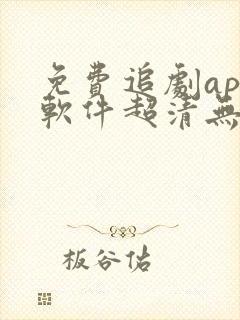 免費追劇ap
軟件超清無
板谷佑